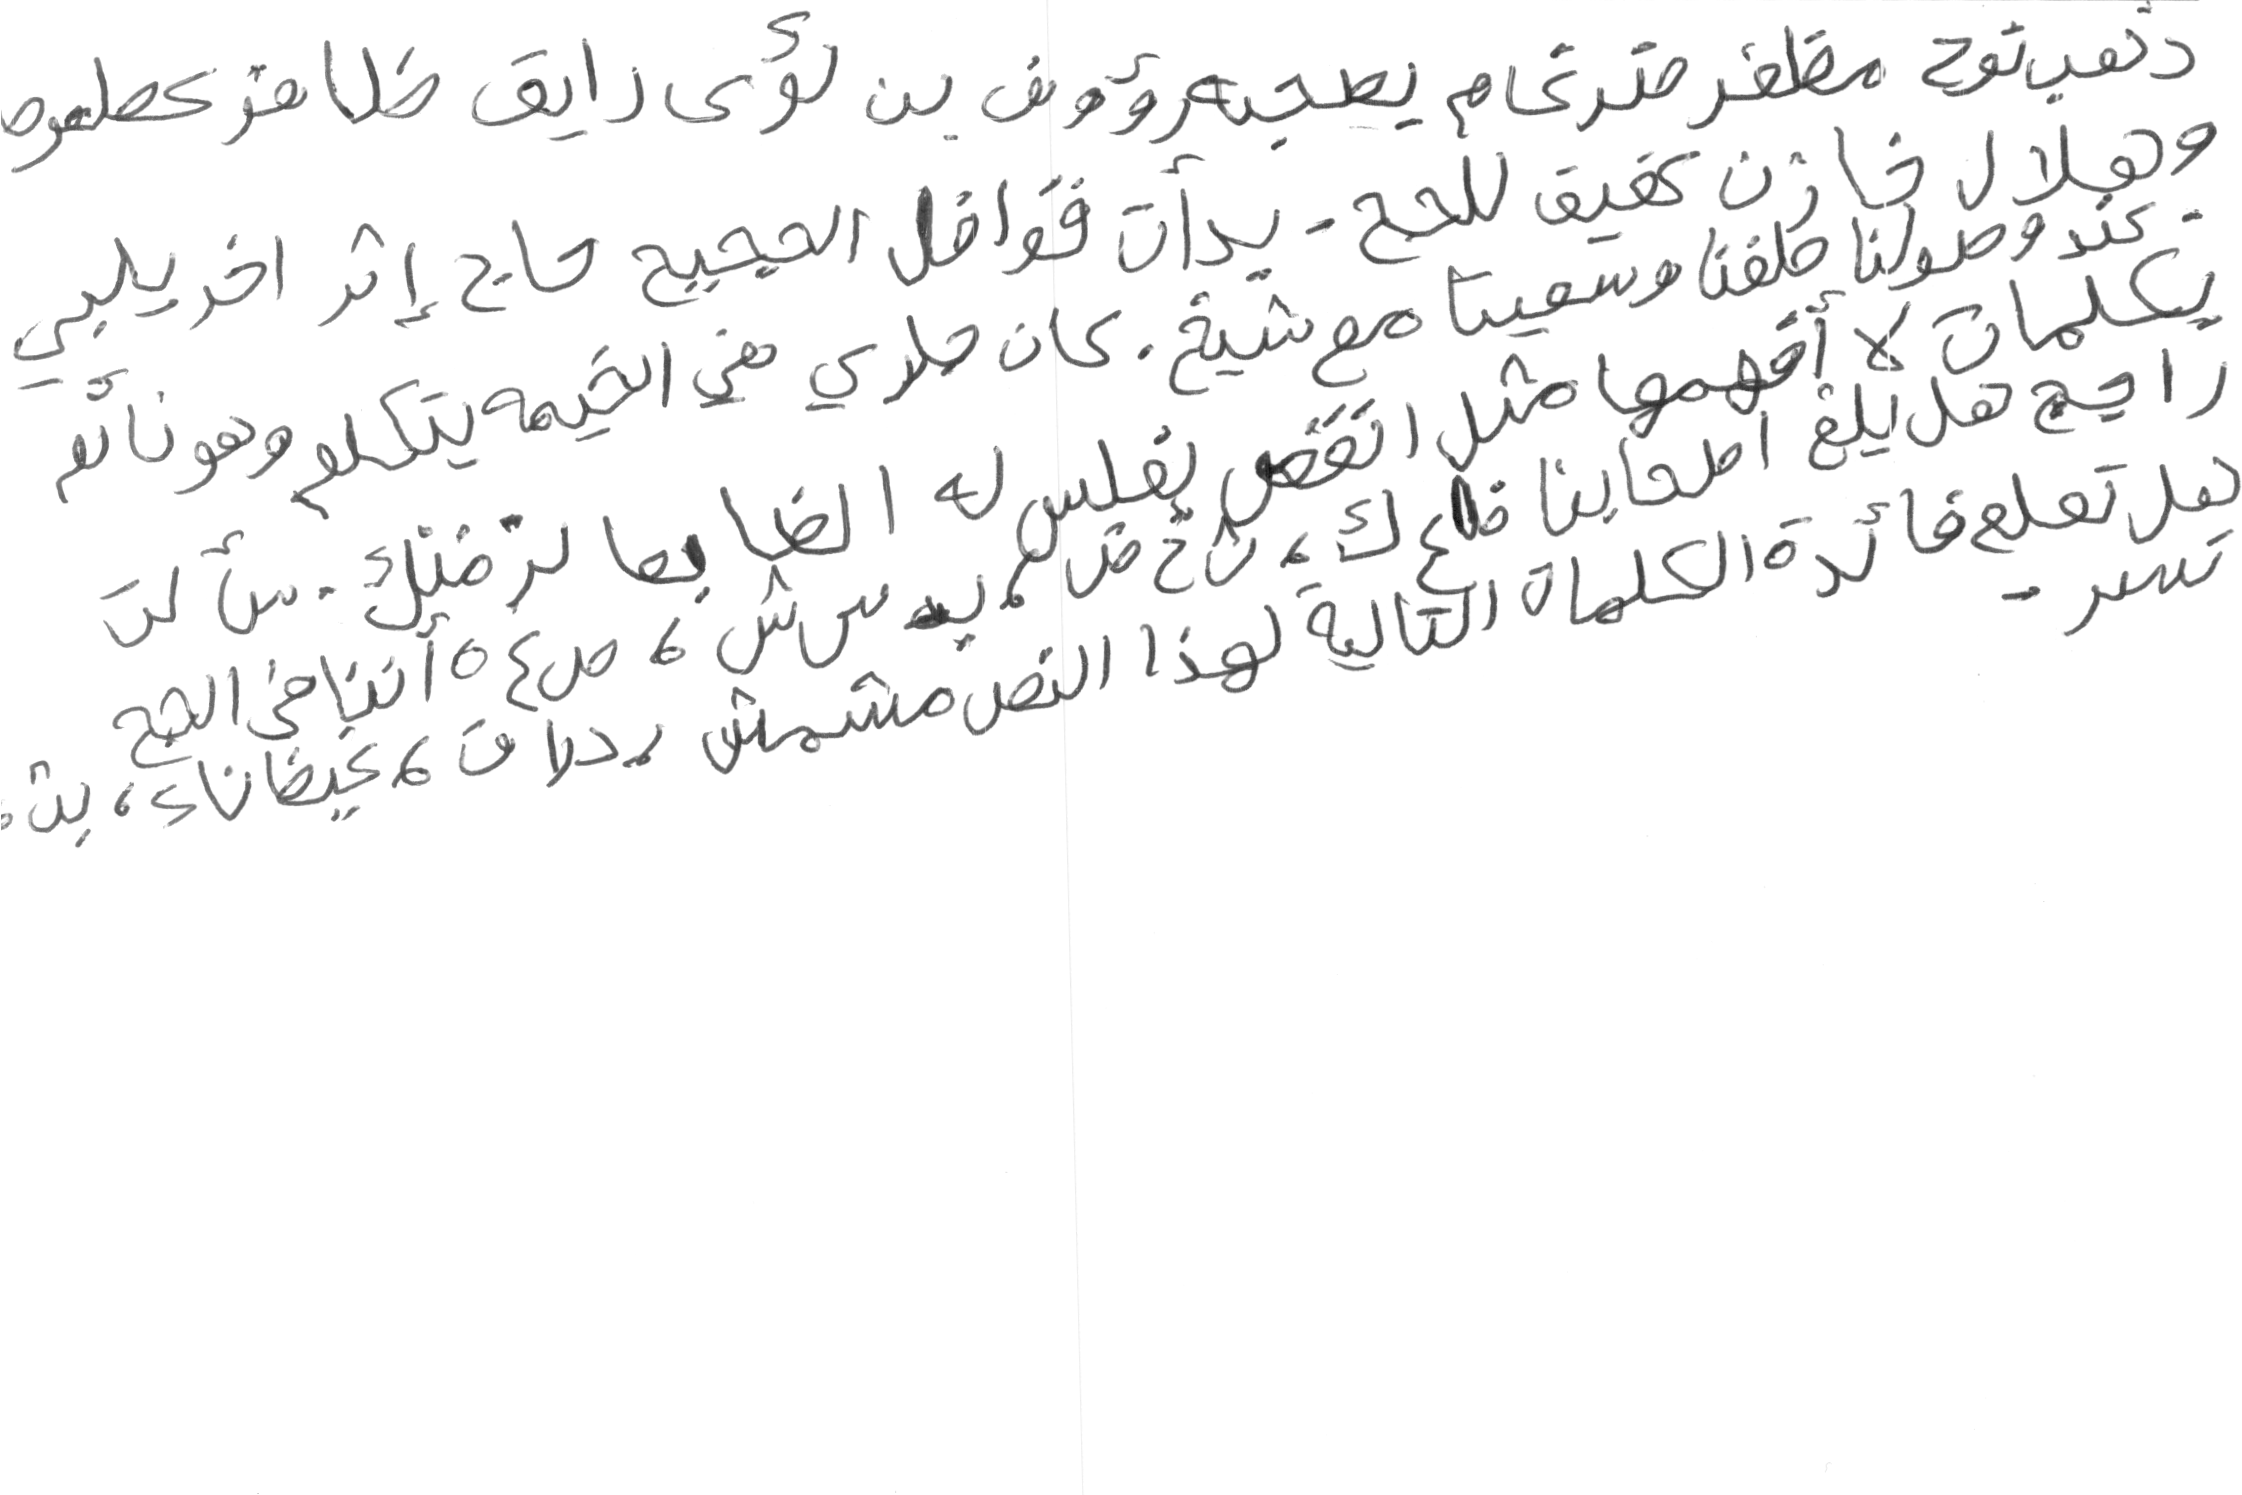 ذهب نوح مظفر ضرغام بصحبه رؤوف بن لؤى رايق ظافر عطعوط
وهلال خازن عفيف للحج. بدأت قوافل الحجيج حاج إثر اخر يلبي
. عند وصولنا حلقنا وسعينا مع شيخ. كان جاري في الخيمه يتكلم وهو نائم
بكلمات لا أفهمها مثل انقض يفلس له الضابعا لرفتك. سألت
راجح هل بلغ اصحابنا ك، ش س ش، ص ع ه أثناء الحج
هل تعلم فائدة الكلمات التالية لهذا النص مشمش، دلاق، غيظانك، بث،
تسر.